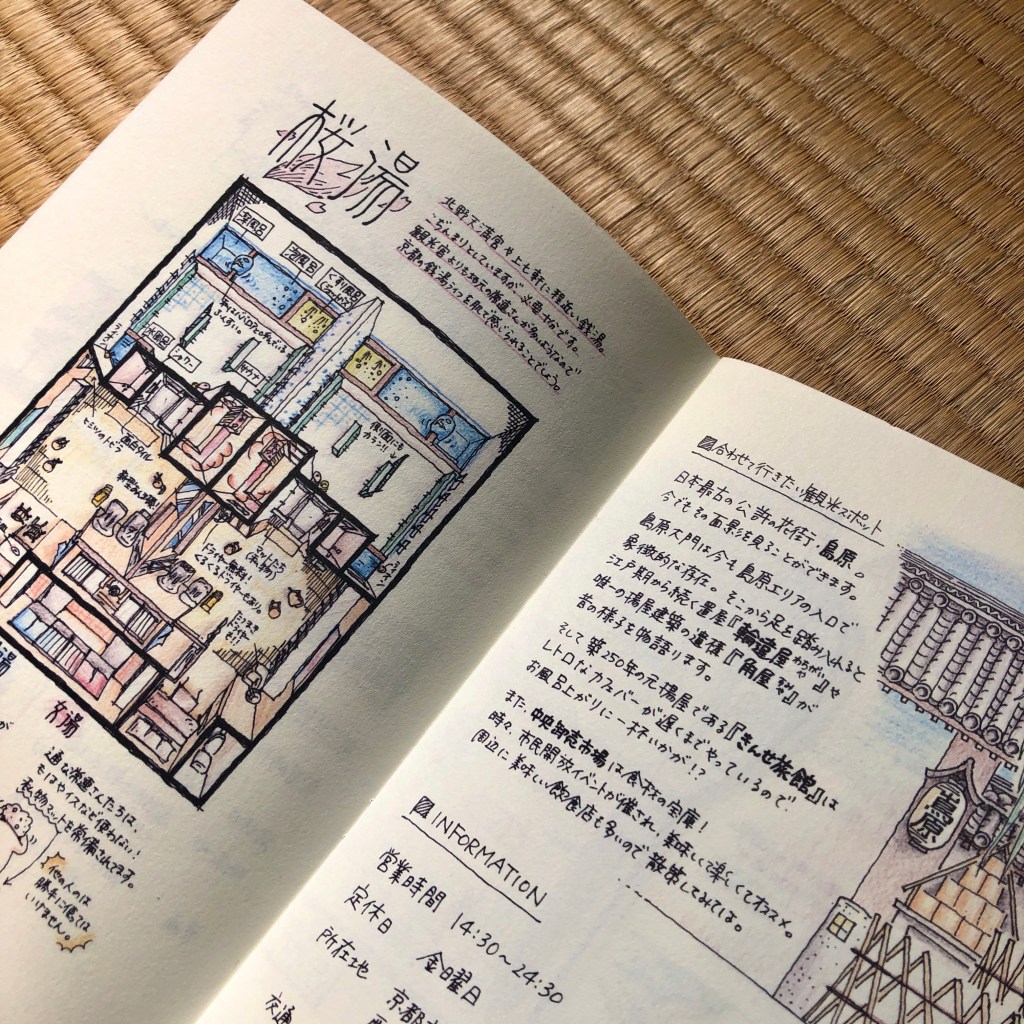 桜湯
北野天満宮や上七軒に程近い銭湯。
こぢんまりとしていますが、必要十分です。
観光客よりも地元の常連さんが多いようなので
京都の銭湯らしさを肌で感じられることでしょう。
深風呂
泡風呂
くすり風呂
水風呂
シャワー
サウナ
側面にも
カラン!!
面白タイル
ヒミツのトビラ
マッサージ機
ドライヤー無料!
女湯
通な常連さんたちは、
もはやイスなど使わない!
私物マットを常備されてます。
他の人のは
勝手に使ては
いけません。
合わせて行きたい観光スポット
日本最古の公許の花街、島原。
今でもその面影を見ることができます。
島原大門は今も島原エリアの入口で
象徴的な存在。そこから足を踏み入れると
江戸期から続く置屋『輪違屋わちがいや』や
唯一の揚屋建築の遺構『角屋すみや』が
昔の様子を物語ります。
そして築250年の元揚屋である『きんせ旅館』は
レトロなカフェバーが遅くまでやっているので、
お風呂上がりに一杯いかが!?
また、中央卸売市場は食材の宝庫!
時々、市民開放イベントが催され、美味しくて楽しくてオススメ。
周辺に美味しい飲食店も多いので散策してみては。
INFORMATION
営業時間 14:30〜24:30
定休日 金曜日
所在地 京都
交通
島原